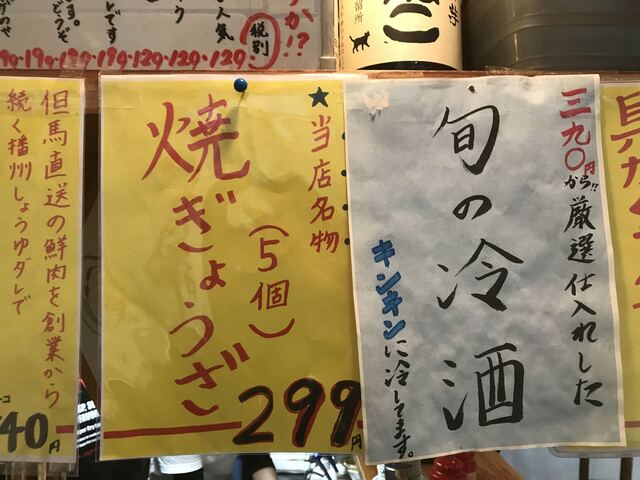 税別
19g 19g 19g 129 129 129
厳選仕入れした
三九〇円から!!
旬の冷酒
キンキンに冷してます。
★当店名物
焼ぎょうざ
(5個)
299円
但馬直送の鮮肉を創業から
続く播州しょうゆダレで
40円